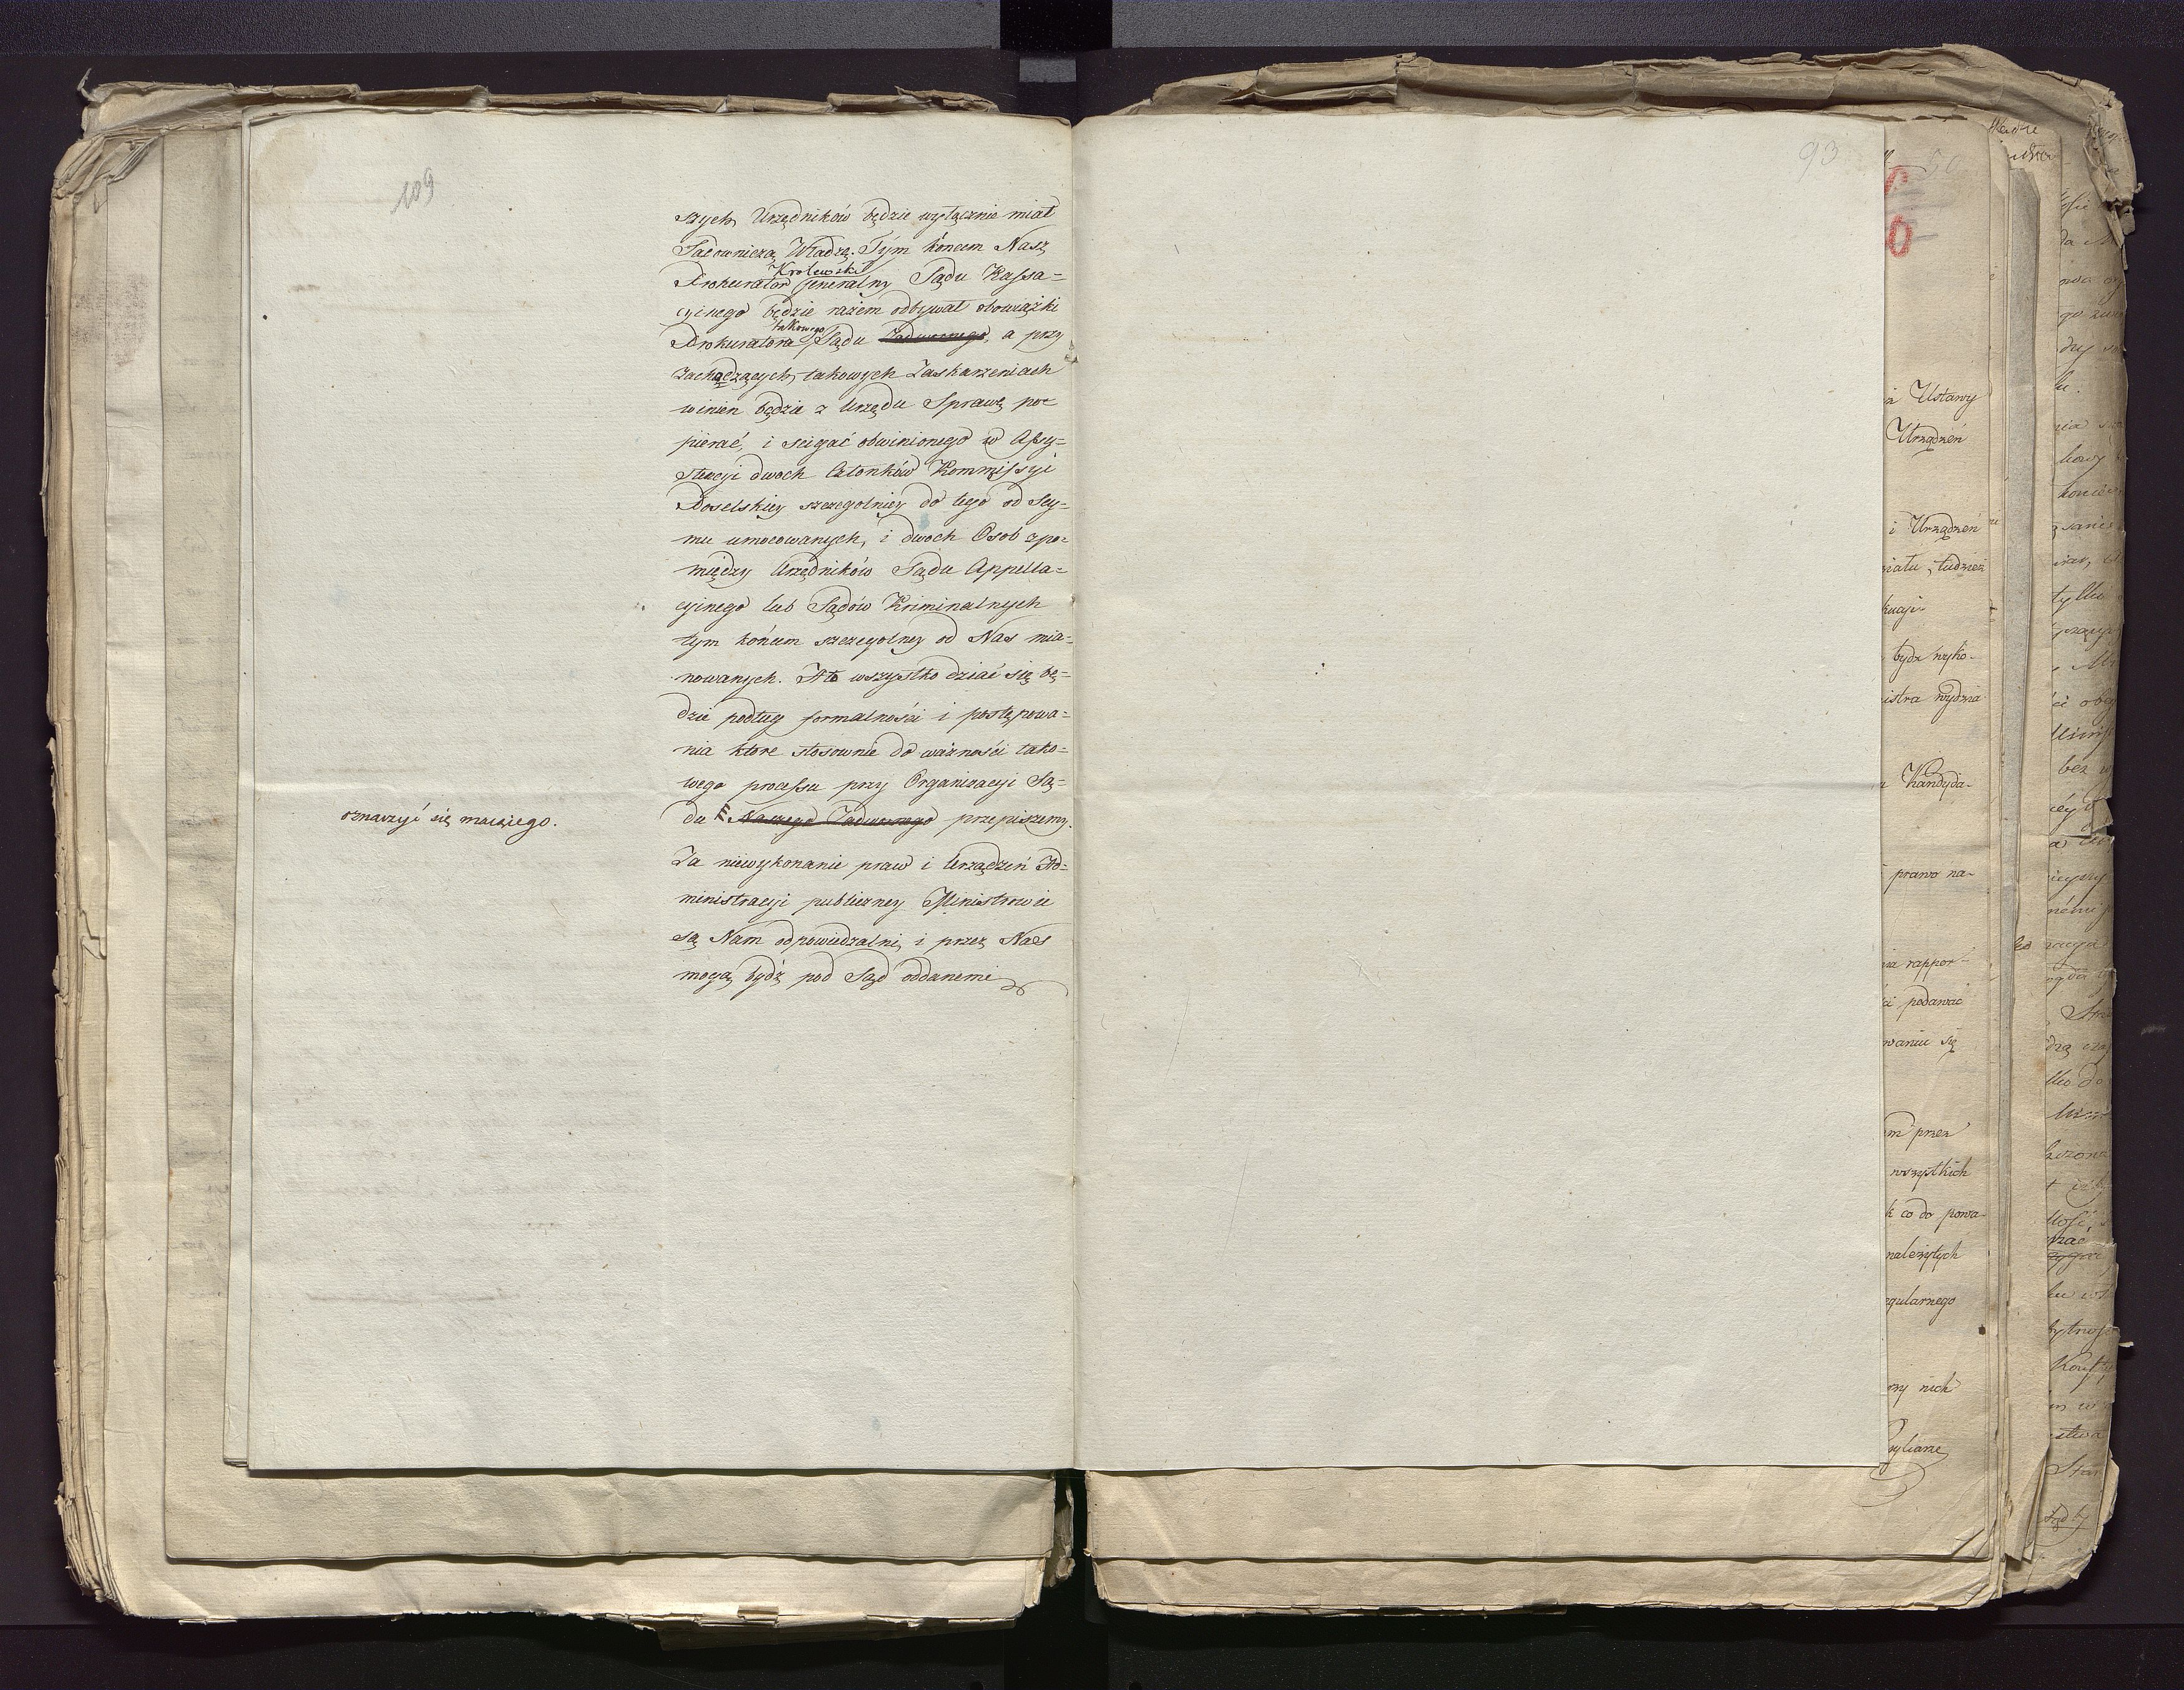 109
szych Urzędników będzie wyłącznie miał
Sądowniczą Władzę. Tym końcem Nasz
Krolewski
Prokurator Generalny Sądu Kassa=
cyinego będzie razem odbywał obowiązki
takowego
Prokuratora Sądu Zadwornego, a przy
zachodzących takowych Zaskarzeniach
winien będzie z Urzędu Sprawę po=
pierać, i scigać obwinionego w Assy=
stencyi dwoch Członków Kommissyi
Poselskiey szczegolniey do tego od Sey=
mu umocowanych, i dwoch Osob z po=
między Urzędników Sądu Appella=
cyinego lub Sądów Kriminalnych
tym końcem szczegolney od Nas mia=
nowanych. A to wszystko dziać się bę=
dzie podług formalności i postępowa=
nia ktore stosownie do ważności tako=
wego processu przy Organizacyi Są=
oznaczyć się maiącego.
du Naszego Zadwornego przepiszemy.
Za niewykonanie praw i Urządzeń Ad=
ministracyi publiczney Ministrowie
są Nam odpowiedzalni, i przez Nas
mogą bydź pod Sąd oddanemi
93
50
Ustawy
Urządzeń
i Urządzeń
tudzież
bydź wyko-
wydzia
Kandyda-
prawo na-
rappor-
podawać
się
przez
wszystkich
co do powa-
należytych
nich